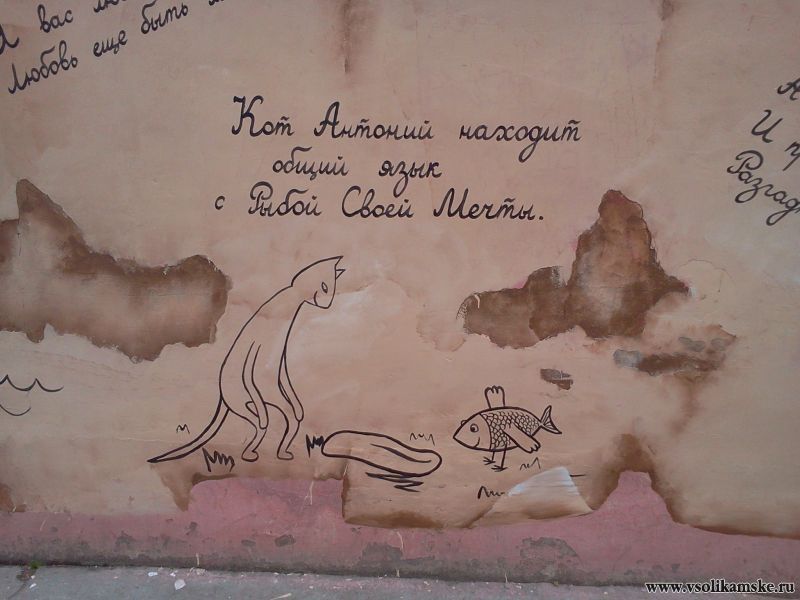 Я вас
Любовь еще быть
Кот Антоний находит
общий язык
с Рыбой Своей Мечты.
И
www.vsolikamske.ru